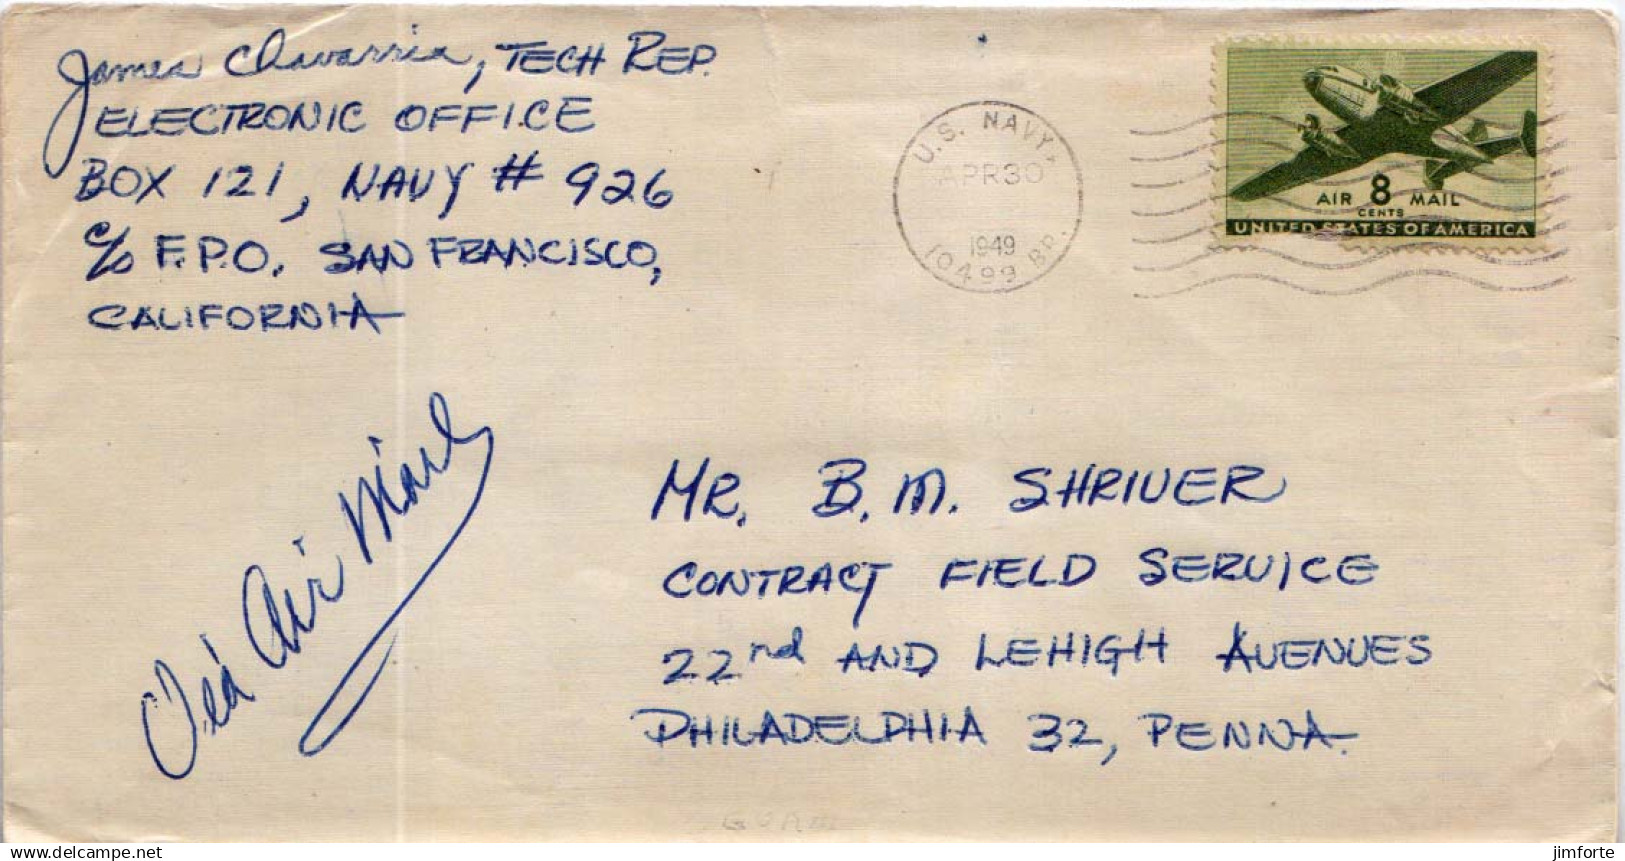 James Chavarria, TECH REP.
ELECTRONIC OFFICE
BOX 121, NAVY # 926
c/o F.P.O. SAN FRANCISCO,
CALIFORNIA
U.S. NAVY
APR 30
1949
10499 BR.
AIR 8 MAIL
CENTS
UNITED STATES OF AMERICA
Via Air Mail
MR. B. M. SHRIVER
CONTRACT FIELD SERVICE
22nd AND LEHIGH AVENUES
PHILADELPHIA 32, PENNA.
GUAM
delcampe.net
jimforte